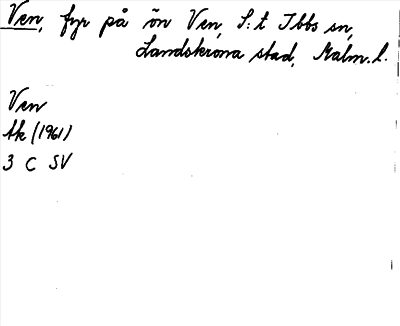 Ven, fyr på ön Ven, S:t Ibbs sn,
Landskrona stad, Malm. l.
Ven
tk (1961)
3 C SV